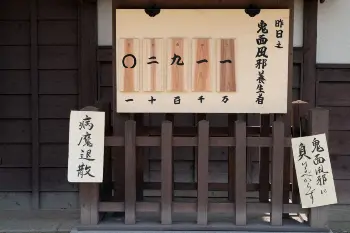 昨日之
鬼面風邪養生者
〇二九一一
一十百千万
病魔退散
鬼面風邪に
負けべからず